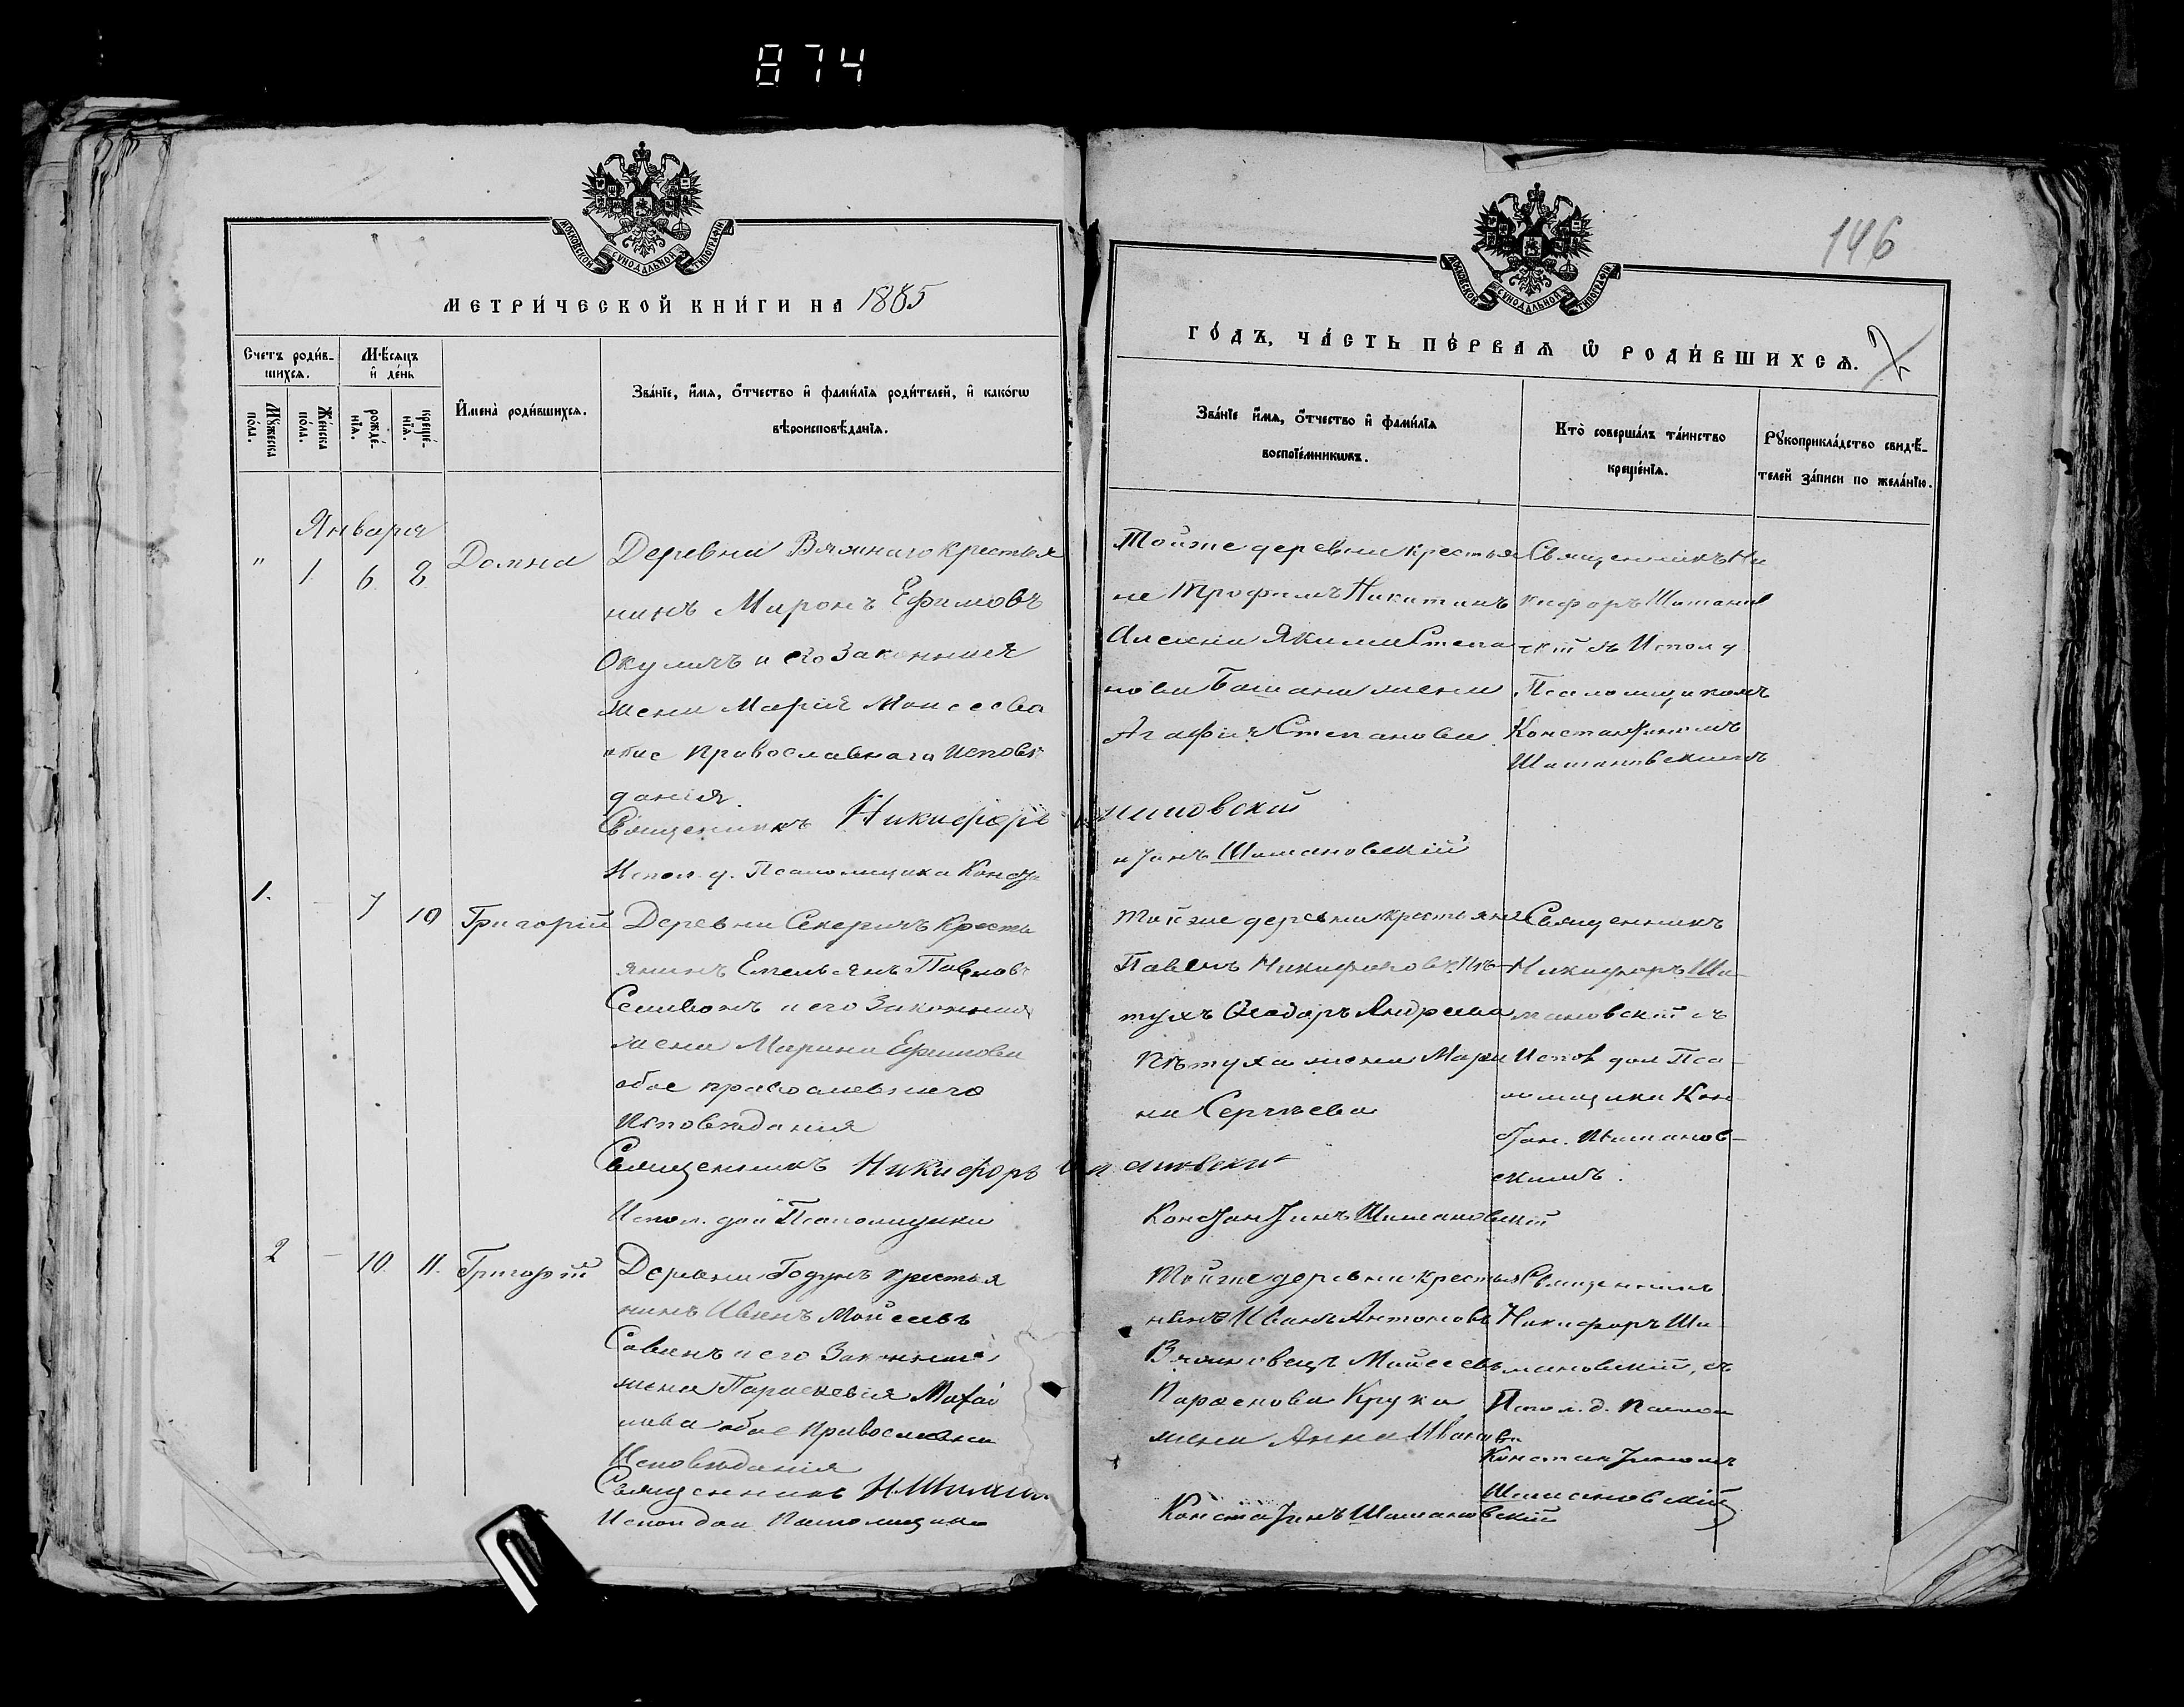 874
МОСКОВСКОЙ СѴНОДАЛЬНОЙ ТИПОГРАФІИ
МЕТРИ́ЧЕСКОЙ КНИ́ГИ НА 1885
Счетъ роди́в-
шихсѧ.
Мѣ́сѧцъ
и҆ де́нь
Мꙋ́жеска
по́ла.
Же́нска
по́ла.
рожде́-
нїѧ.
креще́-
нїѧ.
И҆мена̀ роди́вшихсѧ.
Зва́нїе, и҆́мѧ, ѻ҆́тчество и҆ фами́лїѧ роди́телей, и҆ како́гѡ
вѣроисповѣ́данїѧ.
Января
" 1. 6. 8 Домна
Деревни Вязннаго крестья
нинъ Миронъ Ефимовъ
Окуличъ и его Законная
жена Марія Моисеева
обое Православнаго Исповѣ
данія.
Священникъ Никифоръ
Испол. д. Псаломщика Конста
1. - 7 10 Григорій
Деревни Секеричъ Кресть
янинъ Емельянъ Павловъ
и его Законная
жена Марина Ефимова
обое православнаго
Исповѣданія
Священникъ Никифоръ
Испол. дол Псаломщика
2 - 10. 11. Григорій
Деревни Годунъ крестья
нинъ Иванъ Мойсеевъ
Савинъ и его Законная
жена Параскевія
обое Православна
Исповѣданія
Священникъ Н. Шиман
Испол дол Псаломщика
146
МОСКОВСКОЙ СѴНОДАЛЬНОЙ ТИПОГРАФІИ
ГО́ДЪ, ЧА́СТЬ ПЕ́РВАѦ Ѡ҆ РОДИ́ВШИХСѦ.
2
Зва́нїе и҆́мѧ, ѻ҆́тчество и҆ фами́лїѧ
воспрїе́мникѡвъ.
Кто̀ соверша́лъ та́инство
креще́нїѧ.
Рꙋкоприкла́дство свидѣ́-
телей за́писи по жела́нїю.
Тойже деревни крестья
не Трофимъ Никитинъ
Алексни Якима Степа
нова Башана жена
Агафія Степанова
Священникъ Ни
кифоръ Шиманов
скій съ Испол д
Псаломщикомъ
Константиномъ
Шимановскимъ
мановскій
нтинъ Шимановскій
Тойже деревни крестьяне
Павелъ Никифоровъ Пѣ-
тухъ Ѳеодоръ Андреева
Пѣтуха жена Мари
на Сергѣева
Священникъ
Никифоръ Ши-
мановскій съ
Испол дол Пса-
ломщика Кон-
стан. Шиманов-
скимъ.
мановскій
Константинъ Шимановскій
Тойже деревни крестья
нинъ Иванъ Антоновъ
Вязновецъ Мойсеевъ
Парфенова Крука
жена Анна Иванова
Священникъ
Никифоръ Ши-
мановскій, съ
Испол. д. Псалом
Константиномъ
Шимановскій
Константинъ Шимановскій